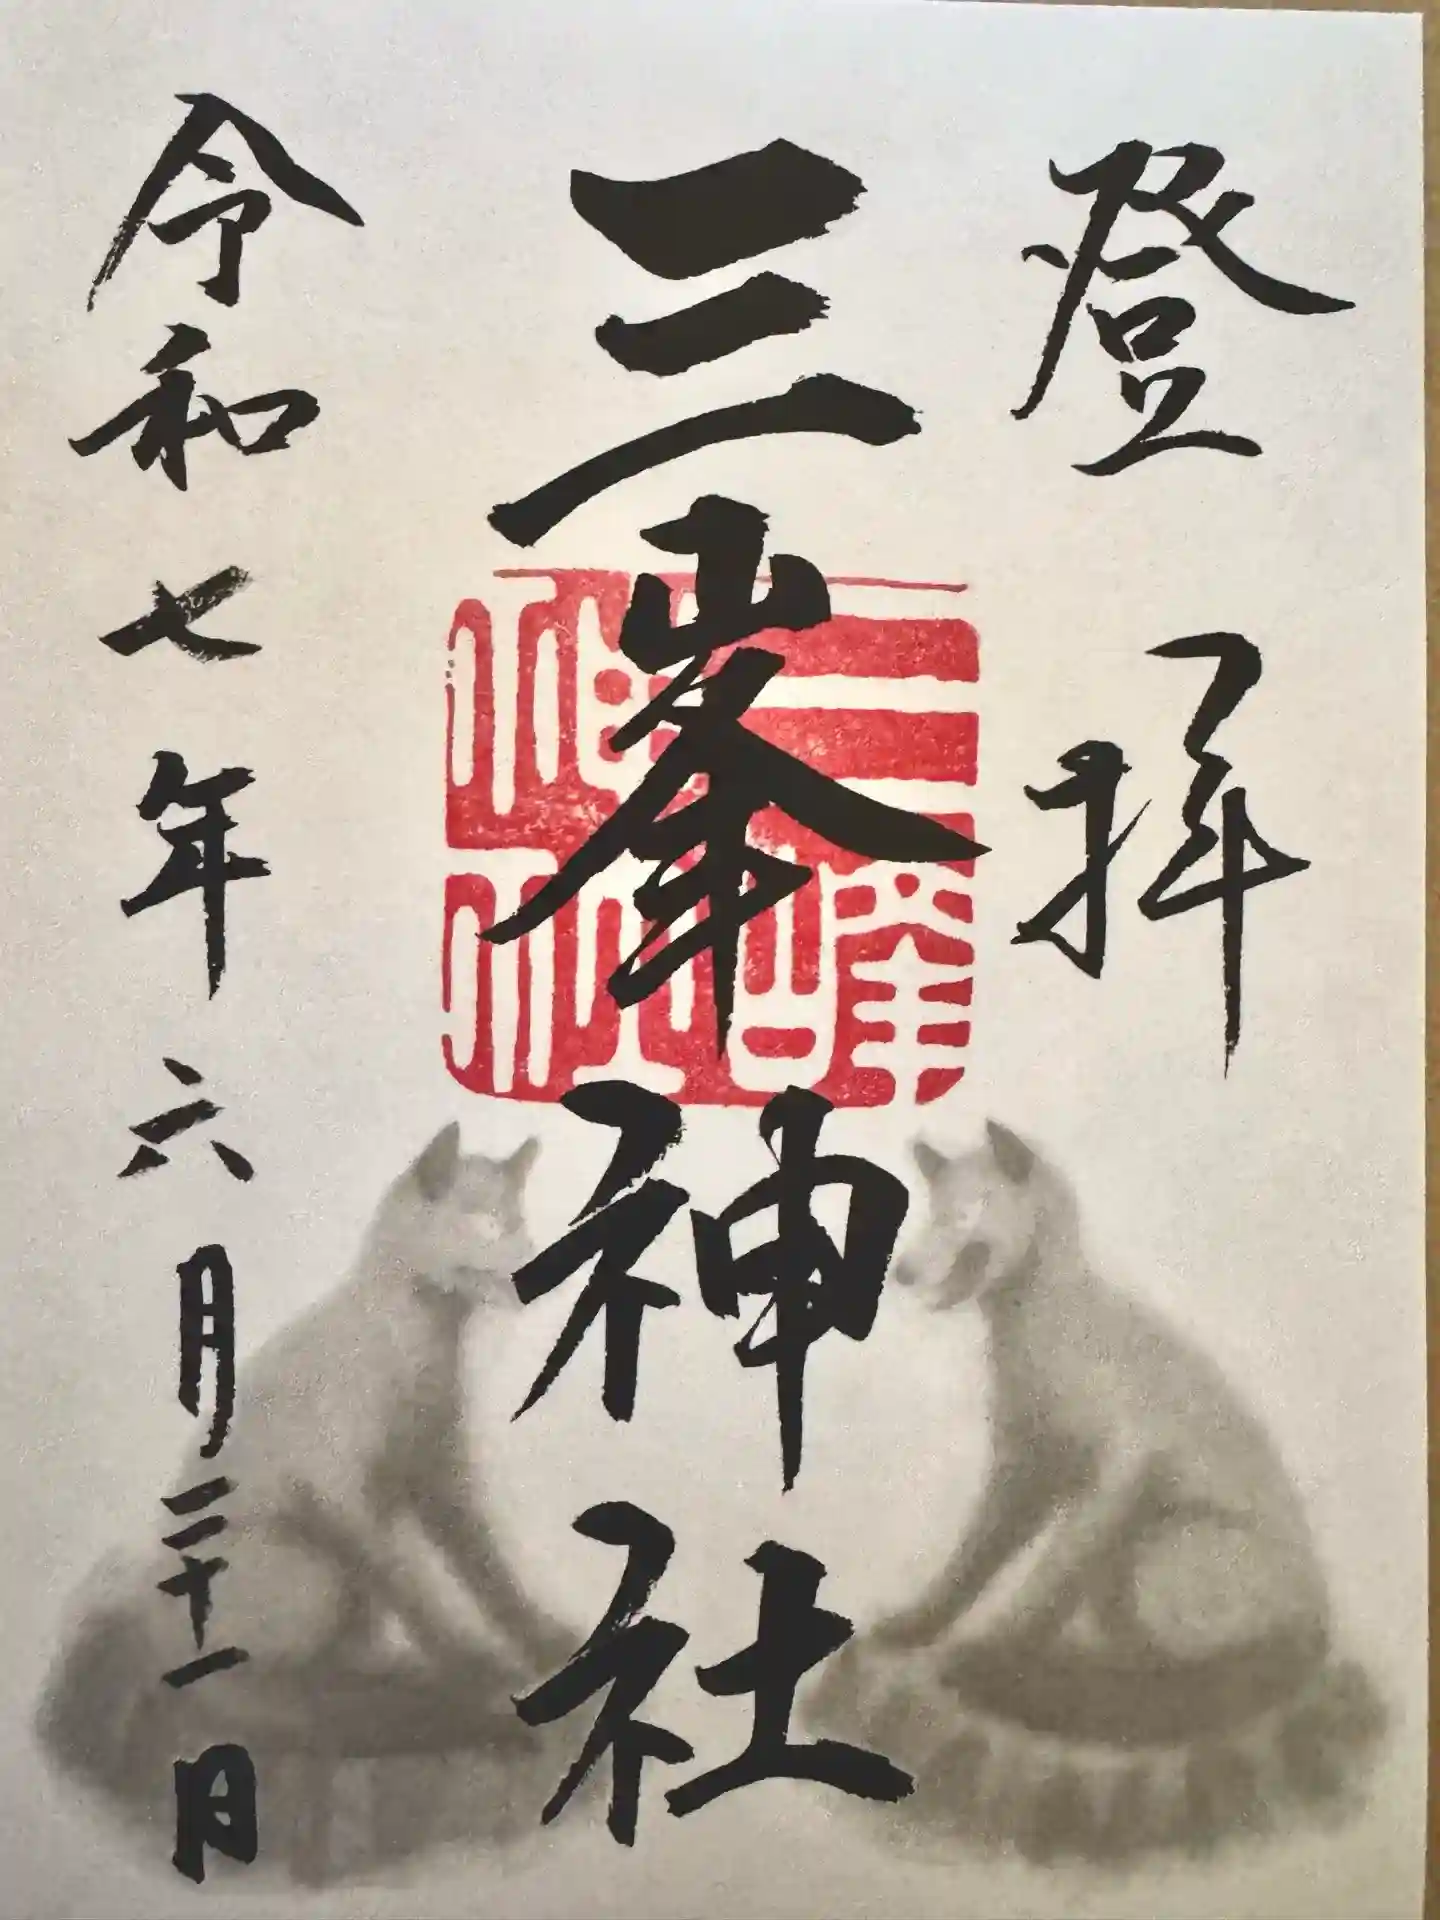 登拝
三峯神社
三峰神社
令和七年六月二十一日